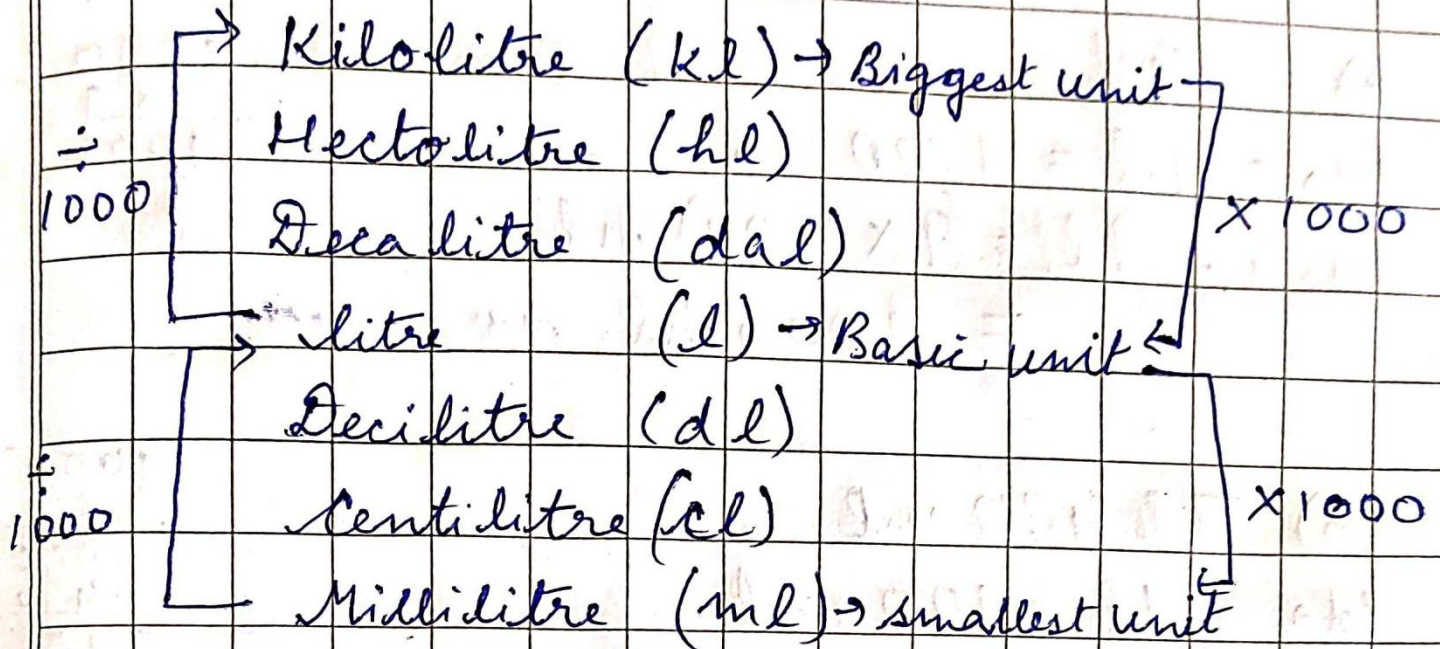 Kilolitre (kl) → Biggest unit
Hectolitre (hl)
÷
1000
Decalitre (dal)
× 1000
litre (l) → Basic unit
Decilitre (dl)
÷
1000
Centilitre (cl)
×1000
Millilitre (ml) → smallest unit